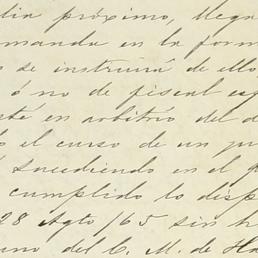 dia próximo, llega
manda en la form
se instruirá de ello
ó no de fiscal esp
en arbitrio del d
el curso de un pr
sucediendo en el p
cumplido lo disp
28 Agto /65 sin h
uno del C. M. de Ha